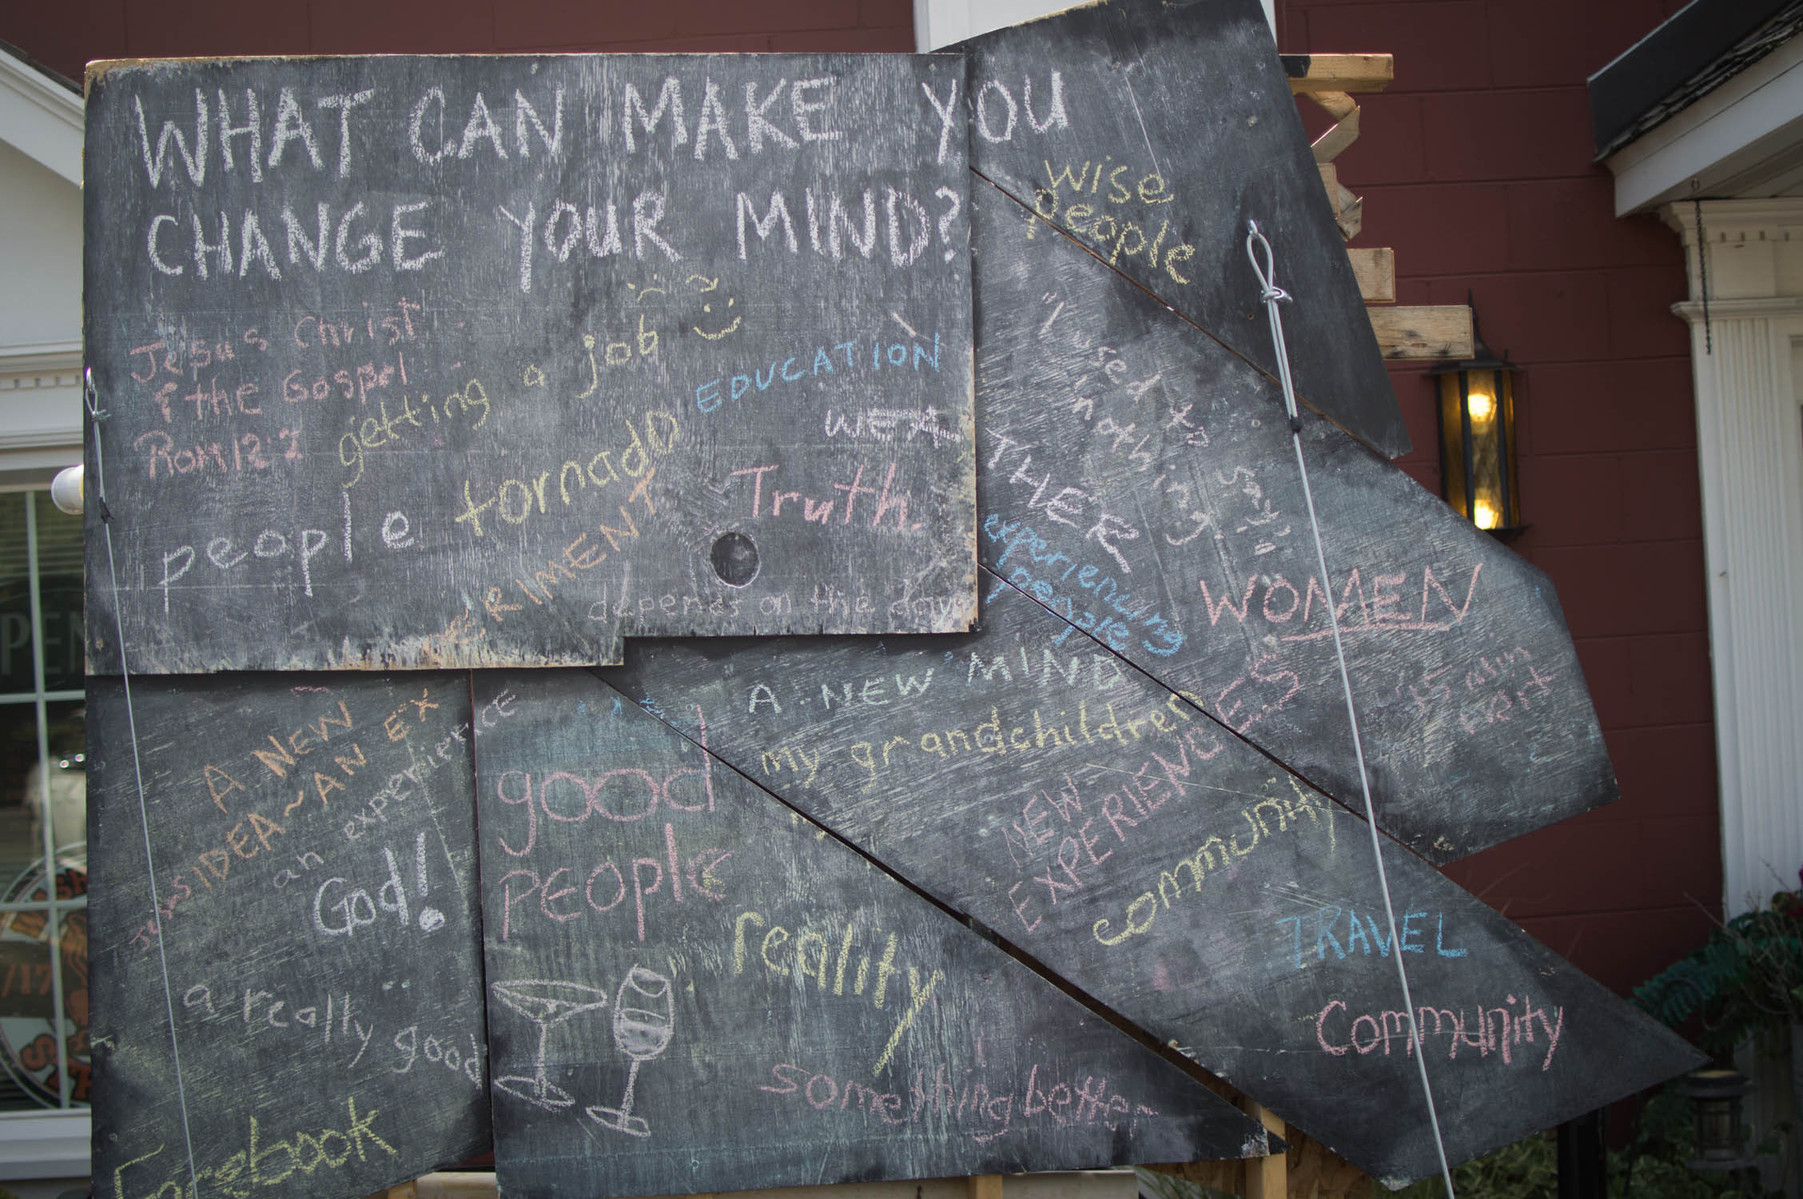 WHAT CAN MAKE YOU
CHANGE YOUR MIND?
wise
people
Jesus Christ
& the Gospel
ROM 12:2
getting a job
EDUCATION
people
tornado
Truth.
WEATHER
"I used to
nothing
experiencing
people
depends on the
WOMEN
A NEW MIND
my grandchildren
NEW
EXPERIENCES
community
TRAVEL
Community
A NEW
IDEA~AN EXPERIMENT
an experience
Jesus
God!
a really good
Facebook
good
PEOPlE
reality
something better
PEN